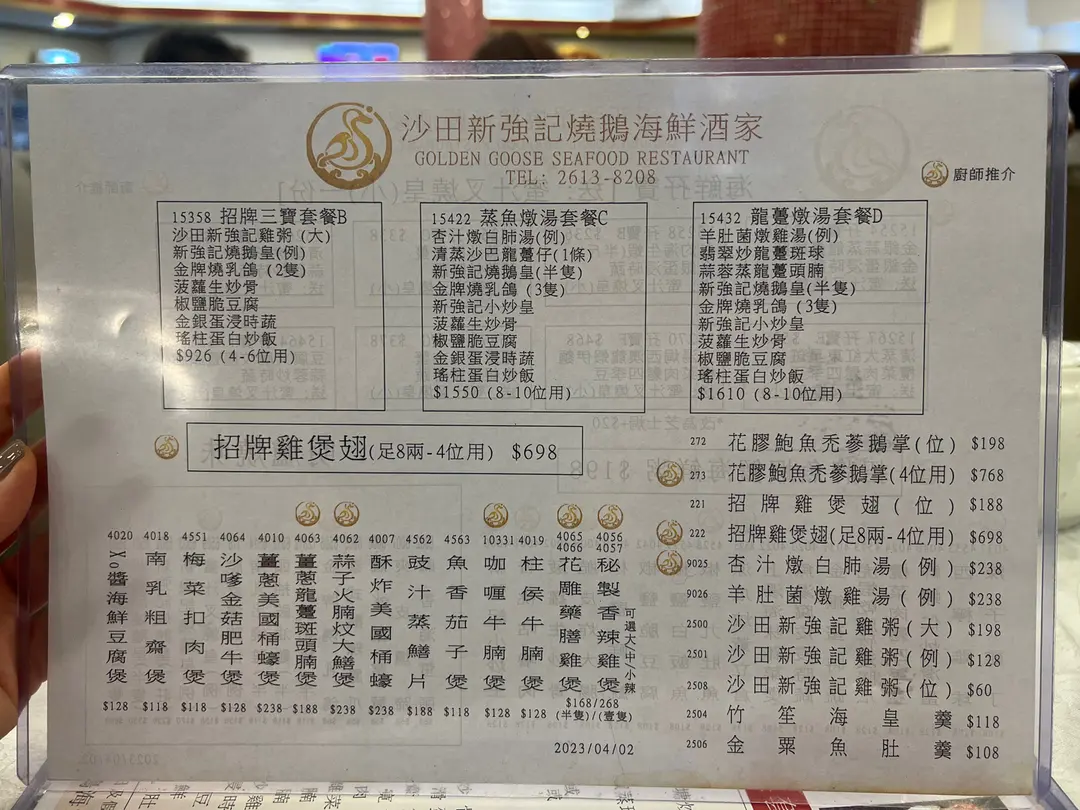 沙田新強記燒鵝海鮮酒家
GOLDEN GOOSE SEAFOOD RESTAURANT
TEL: 2613-8208
廚師推介
15358 招牌三寶套餐B
沙田新強記雞粥 (大)
新強記燒鵝皇(例)
金牌燒乳鴿 (2隻)
菠蘿生炒骨
椒鹽脆豆腐
金銀蛋浸時蔬
瑤柱蛋白炒飯
$926 (4-6位用)
15422 蒸魚燉湯套餐C
杏汁燉白肺湯(例)
清蒸沙巴龍躉仔(1條)
新強記燒鵝皇(半隻)
金牌燒乳鴿 (3隻)
新強記小炒皇
菠蘿生炒骨
椒鹽脆豆腐
金銀蛋浸時蔬
瑤柱蛋白炒飯
$1550 (8-10位用)
15432 龍躉燉湯套餐D
羊肚菌燉雞湯(例)
翡翠炒龍躉斑球
蒜蓉蒸龍躉頭腩
新強記燒鵝皇(半隻)
金牌燒乳鴿 (3隻)
新強記小炒皇
菠蘿生炒骨
椒鹽脆豆腐
瑤柱蛋白炒飯
$1610 (8-10位用)
招牌雞煲翅(足8兩-4位用) $698
272 花膠鮑魚禿蔘鵝掌(位) $198
273 花膠鮑魚禿蔘鵝掌(4位用) $768
221 招牌雞煲翅(位) $188
222 招牌雞煲翅(足8兩-4位用) $698
9025 杏汁燉白肺湯(例) $238
9026 羊肚菌燉雞湯(例) $238
2500 沙田新強記雞粥(大) $198
2501 沙田新強記雞粥(例) $128
2508 沙田新強記雞粥(位) $60
2504 竹笙海皇羹 $118
2506 金粟魚肚羹 $108
4020 Xo醬海鮮豆腐煲 $128
4018 南乳粗齋煲 $118
4551 梅菜扣肉煲 $118
4064 沙嗲金菇肥牛煲 $128
4010 薑蔥美國桶蠔煲 $238
4063 薑蔥龍躉斑頭腩煲 $188
4062 蒜子火腩炆大鱔煲 $238
4007 酥炸美國桶蠔 $238
4562 豉汁蒸鱔片 $188
4563 魚香茄子煲 $118
10331 咖喱牛腩煲 $128
4019 柱侯牛腩煲 $128
4065 4066 花雕藥膳雞煲
4056 4057 秘製香辣雞煲 可選大/中/小辣
$168/268
(半隻)/(壹隻)
2023/04/02